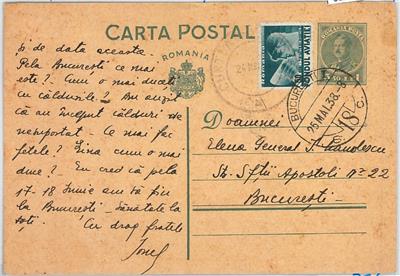 CARTA POSTALA
ROMANIA
și de data aceasta.
Pela București ce mai
este? Cum o mai duceți
cu căldurile? Am auzit
că au început călduri de
nesuportat. Ce mai fac
fetele? Gina cum o mai
duce? Eu cred că pela
17-18 Iunie am să fiu
la București. Sănătate la
toți.
Cu drag frate
Ionel
FONDUL AVIATIEI
ROMANIA POSTA
BUCUREȘTI
26 MAI. 38
Doamnei
Elena General
St. Sfții Apostoli No 22
București